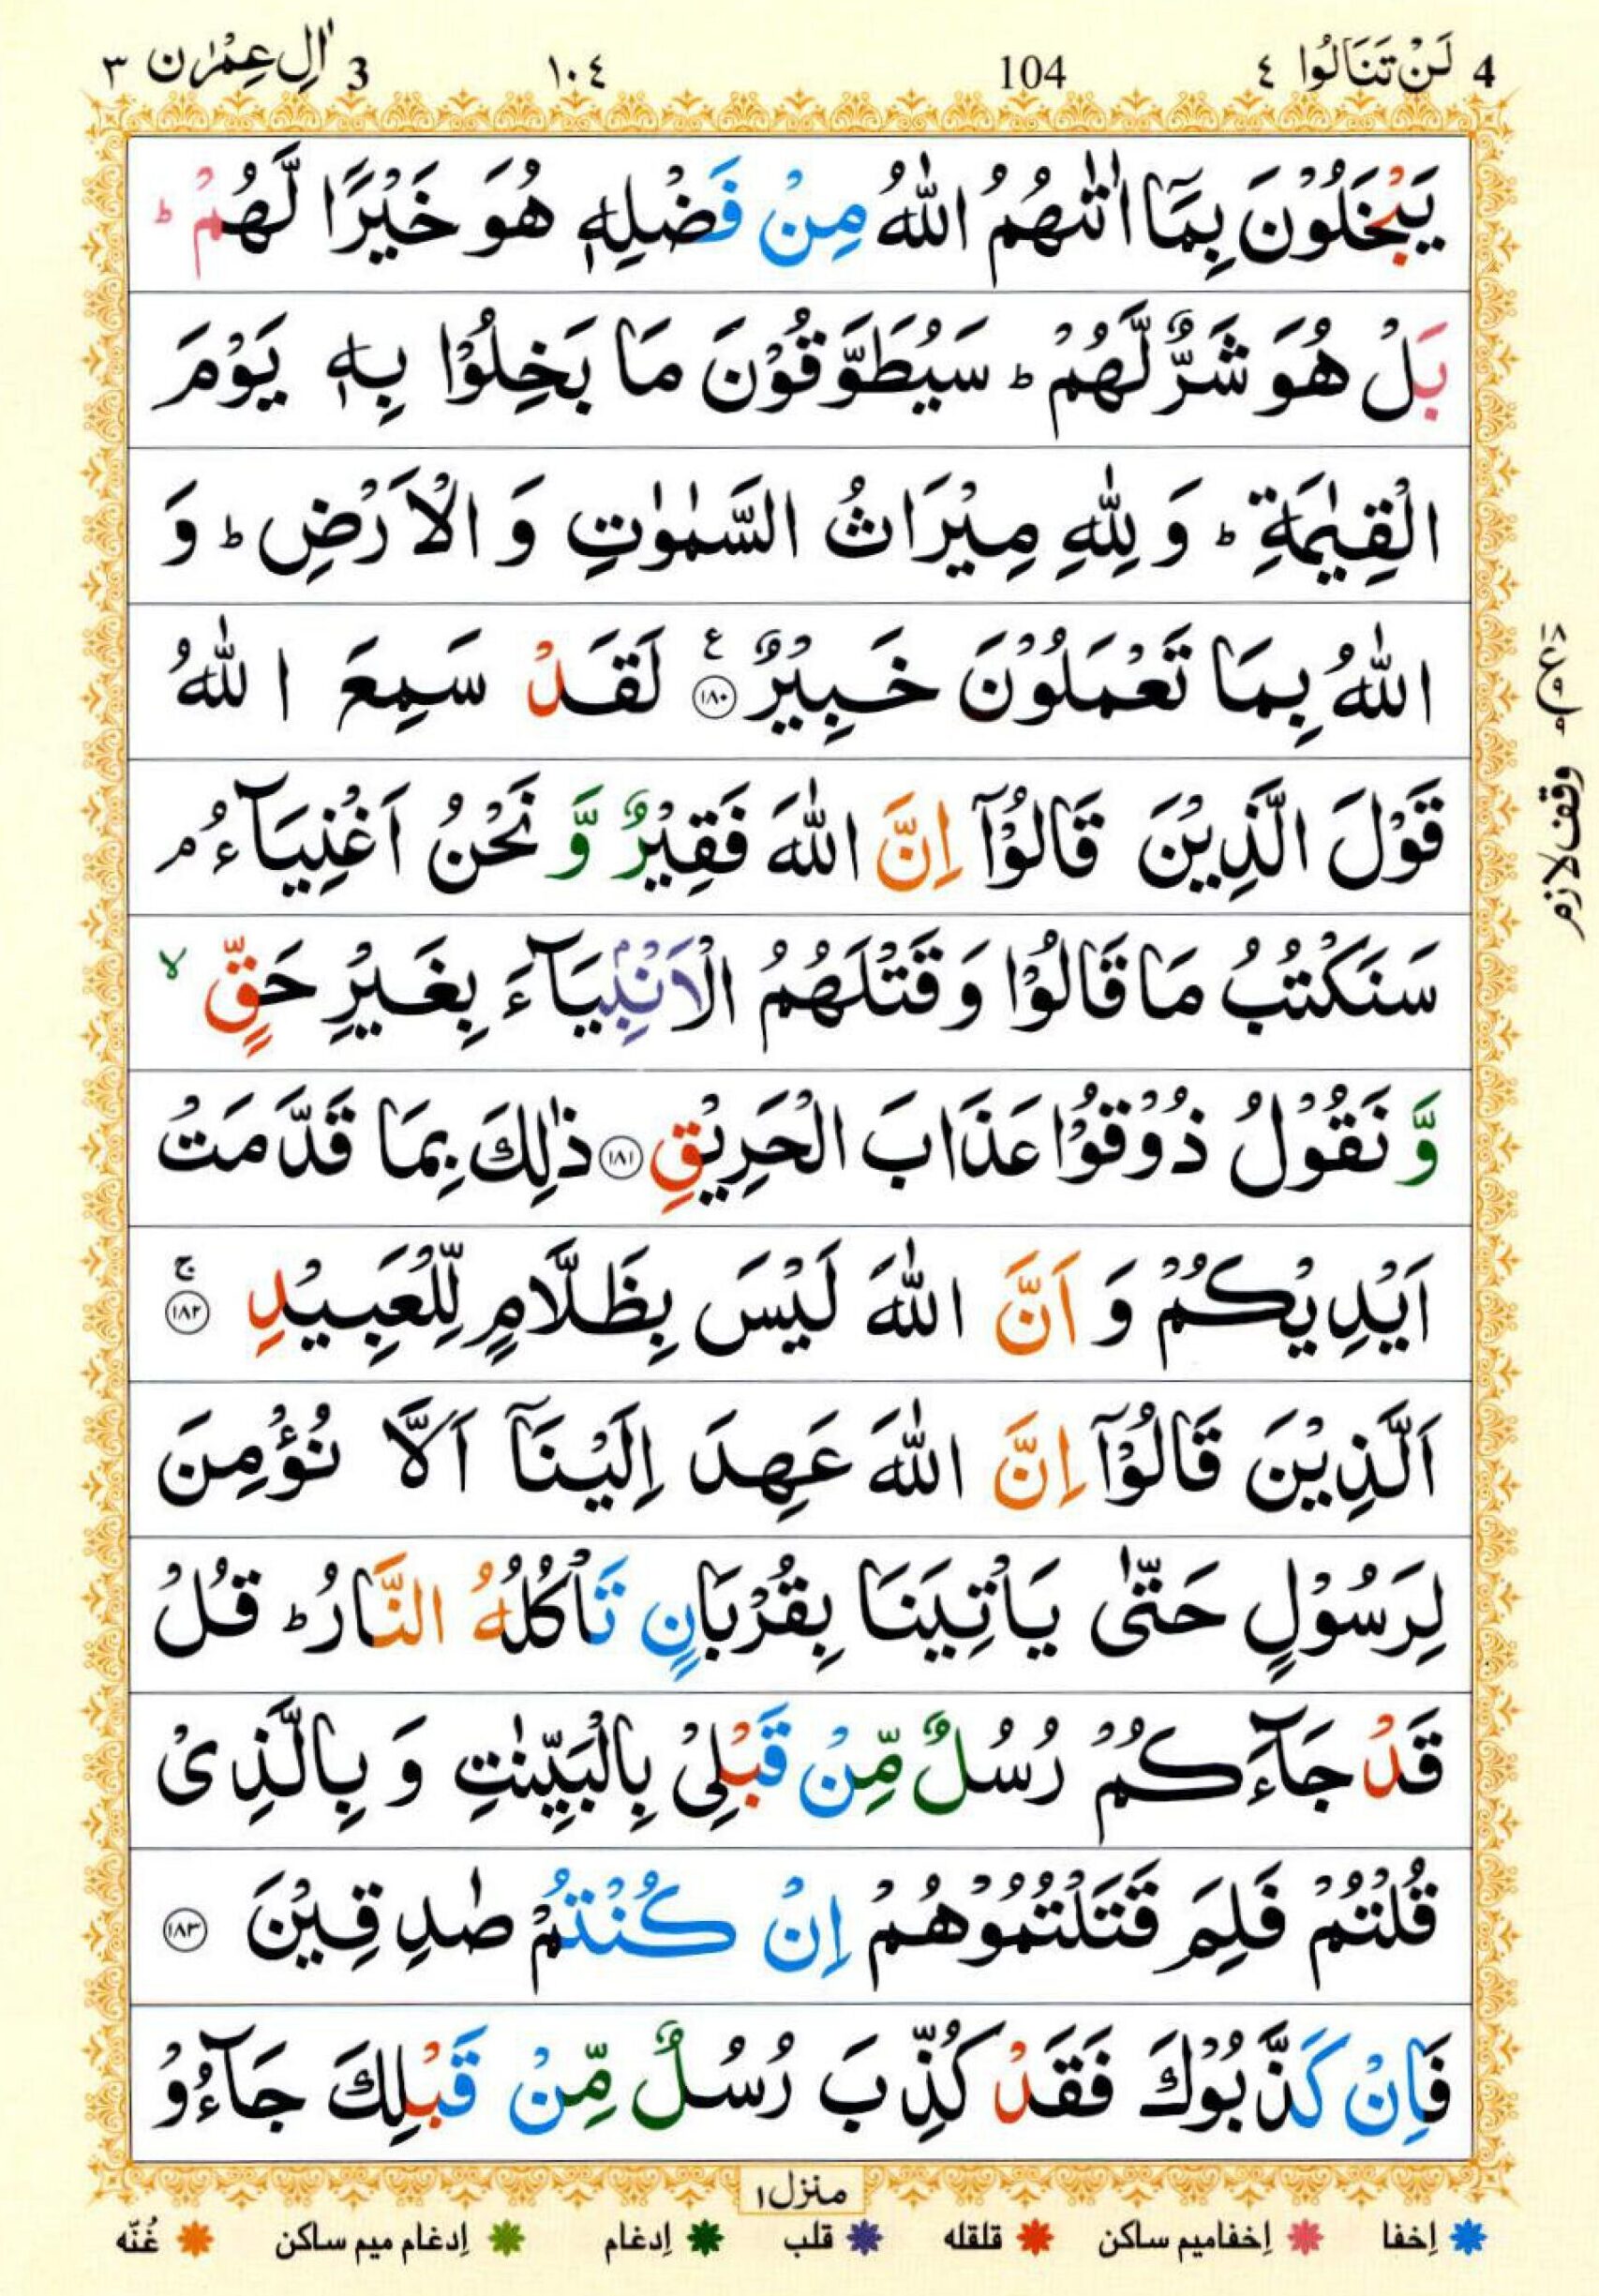 4 لَنْ تَنَالُوا ٤ 104 ١٠٤ 3 اٰلِ عِمْرٰن ٣
يَبْخَلُوْنَ بِمَآ اٰتٰىهُمُ اللّٰهُ مِنْ فَضْلِهٖ هُوَ خَيْرًا لَّهُمْ ؕ
بَلْ هُوَ شَرٌّ لَّهُمْ ؕ سَيُطَوَّقُوْنَ مَا بَخِلُوْا بِهٖ يَوْمَ
الْقِيٰمَةِ ؕ وَ لِلّٰهِ مِيْرَاثُ السَّمٰوٰتِ وَ الْاَرْضِ ؕ وَ
اللّٰهُ بِمَا تَعْمَلُوْنَ خَبِيْرٌ ۧ ﴿١٨٠﴾ لَقَدْ سَمِعَ اللّٰهُ
قَوْلَ الَّذِيْنَ قَالُوْۤا اِنَّ اللّٰهَ فَقِيْرٌ وَّ نَحْنُ اَغْنِيَآءُ ۘ
سَنَكْتُبُ مَا قَالُوْا وَ قَتْلَهُمُ الْاَنْۢبِيَآءَ بِغَيْرِ حَقٍّ ۙ
وَّ نَقُوْلُ ذُوْقُوْا عَذَابَ الْحَرِيْقِ ﴿١٨١﴾ ذٰلِكَ بِمَا قَدَّمَتْ
اَيْدِيْكُمْ وَ اَنَّ اللّٰهَ لَيْسَ بِظَلَّامٍ لِّلْعَبِيْدِ ۚ ﴿١٨٢﴾
اَلَّذِيْنَ قَالُوْۤا اِنَّ اللّٰهَ عَهِدَ اِلَيْنَاۤ اَلَّا نُؤْمِنَ
لِرَسُوْلٍ حَتّٰى يَاْتِيَنَا بِقُرْبَانٍ تَاْكُلُهُ النَّارُ ؕ قُلْ
قَدْ جَآءَكُمْ رُسُلٌ مِّنْ قَبْلِيْ بِالْبَيِّنٰتِ وَ بِالَّذِيْ
قُلْتُمْ فَلِمَ قَتَلْتُمُوْهُمْ اِنْ كُنْتُمْ صٰدِقِيْنَ ﴿١٨٣﴾
فَاِنْ كَذَّبُوْكَ فَقَدْ كُذِّبَ رُسُلٌ مِّنْ قَبْلِكَ جَآءُوْ
وقف لازم
منزل١
اِخفا اِخفامیم ساکن قلقله قلب اِدغام اِدغام میم ساکن غُنّه